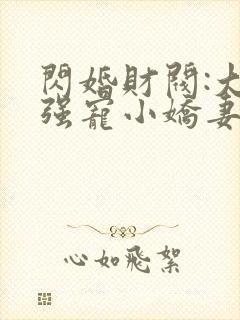 閃婚財閥:大
强寵小嬌妻
心如飛絮